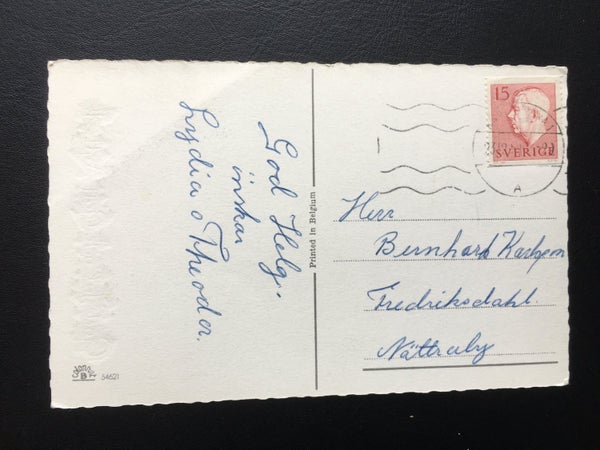 God Helg.
önskar
Lydia o Theodor.
Printed in Belgium
15
SVERIGE
A
Herr
Bernhard
Fredriksdahl.
Nättraby
B
54621